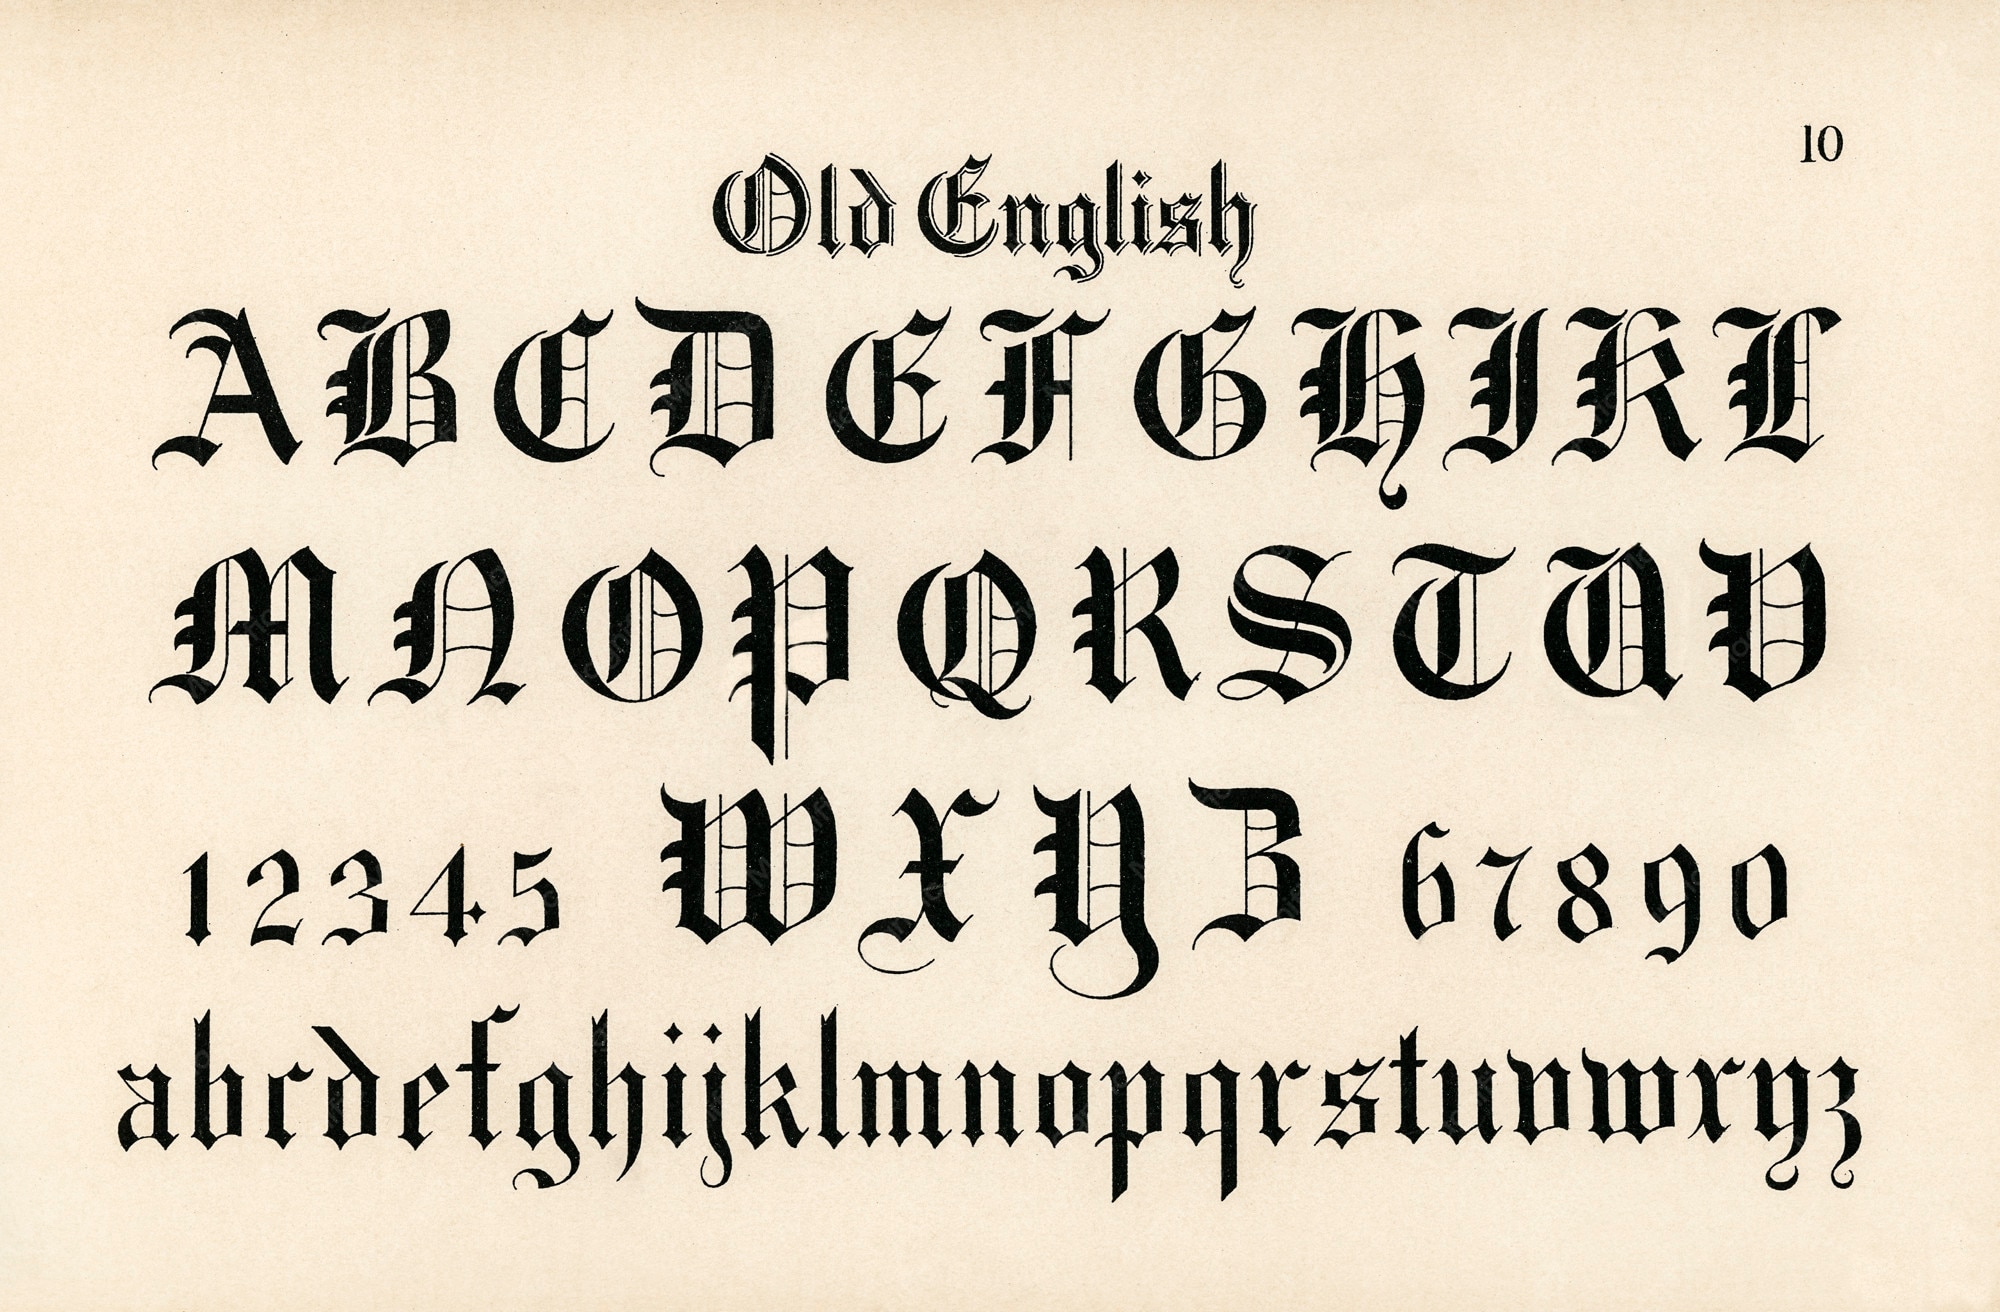 10
Old English
A B C D E F G H I K L
M N O P Q R S T U V
1 2 3 4 5 W X Y Z 6 7 8 9 0
abcdefghijklmnopqrstuvwxyz